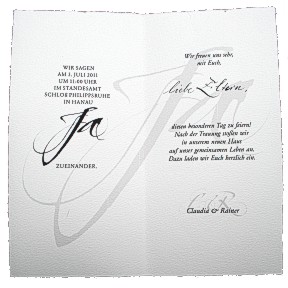 WIR SAGEN
AM 2. JULI 2011
UM 11:00 UHR
IM STANDESAMT
SCHLOß PHILIPPSRUHE
IN HANAU
Ja
ZUEINANDER.
Wir freuen uns sehr,
mit Euch,
liebe Eltern,
diesen besonderen Tag zu feiern!
Nach der Trauung stoßen wir
in unserem neuen Haus
auf unser gemeinsames Leben an.
Dazu laden wir Euch herzlich ein.
C&R
Claudia & Rainer